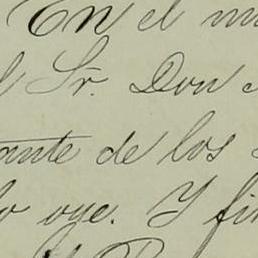 En el mu
l Sr. Don
ante de los
lo oye. Y fin